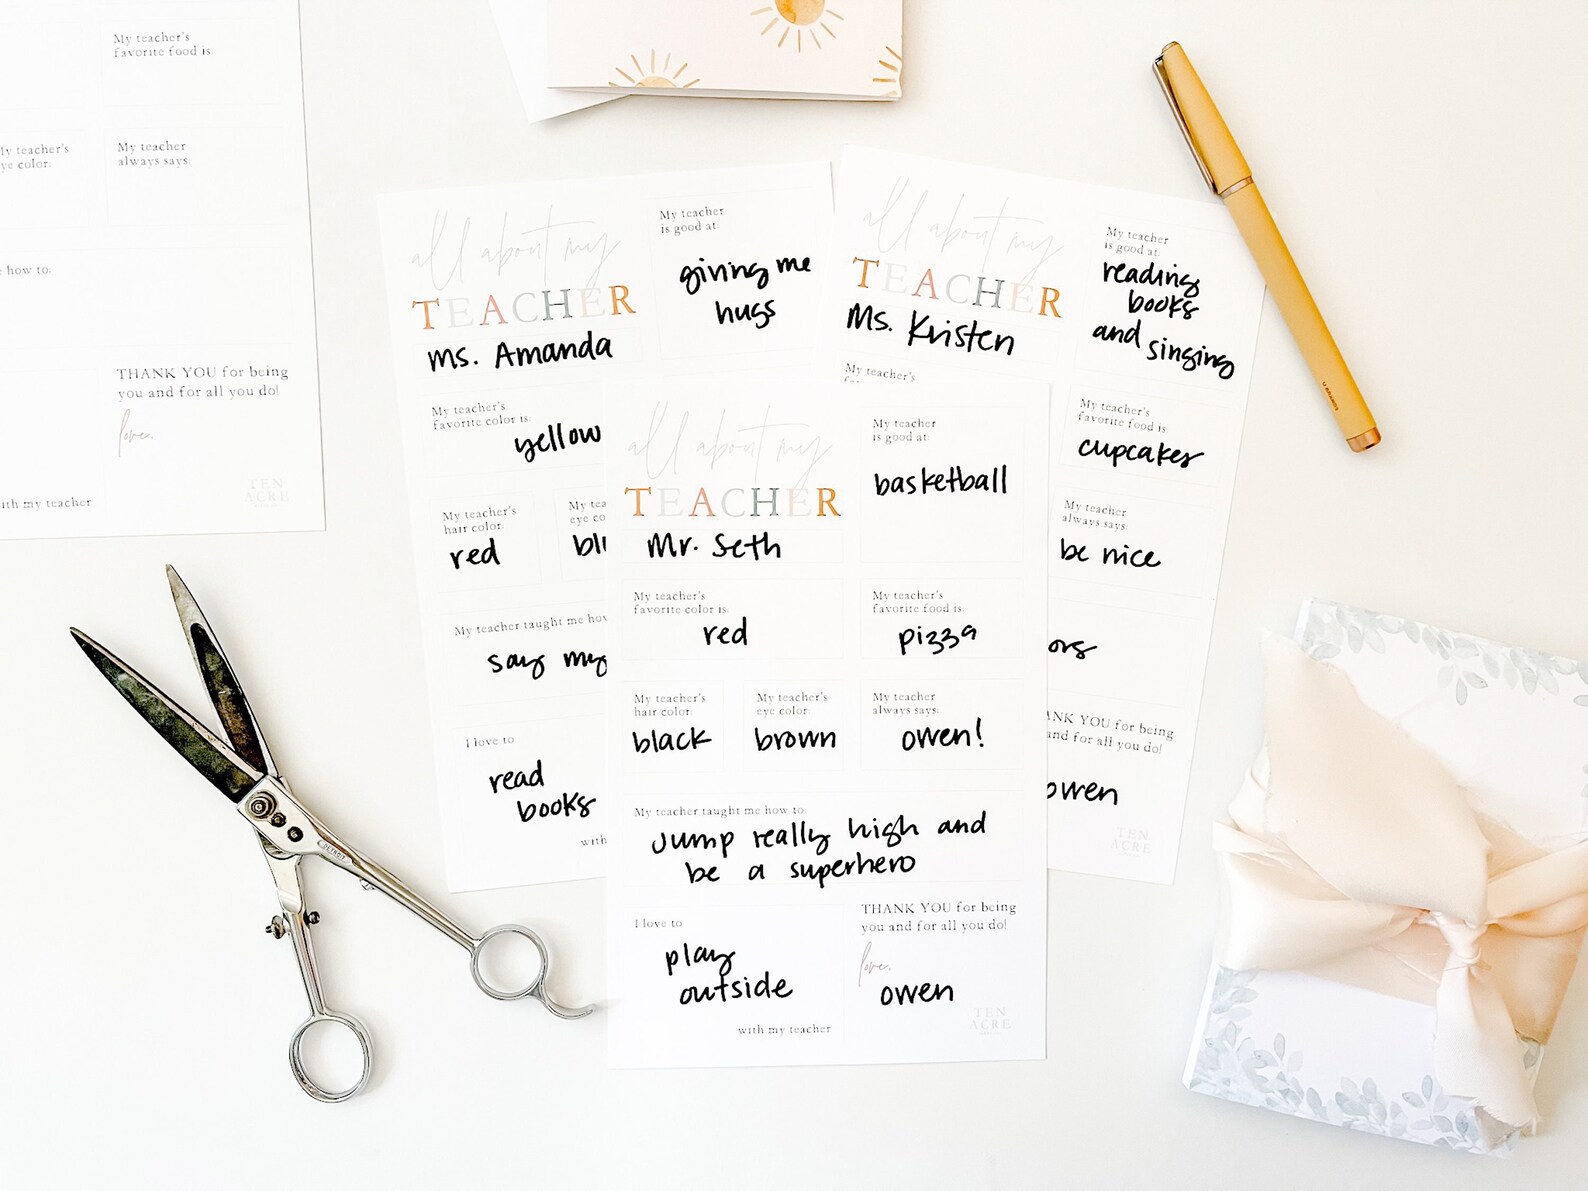 My teacher's
favorite food is:
My teacher's
eye color:
My teacher
always says:
how to:
THANK YOU for being
you and for all you do!
love,
with my teacher
TEN
ACRE
all about my
TEACHER
Ms. Amanda
My teacher
is good at:
giving me
hugs
My teacher's
favorite color is:
yellow
My teacher's
hair color:
red
My
say my
My teacher taught me
I love to
read
books
with
all about my
TEACHER
Ms. Kristen
My teacher
is good at:
reading
books
and singing
My teacher's
My teacher's
favorite food is:
cupcakes
My teacher
always says:
be nice
THANK YOU for being
and for all you do!
owen
TEN
ACRE
all about my
TEACHER
Mr. Seth
My teacher
is good at:
basketball
My teacher's
favorite color is:
red
My teacher's
favorite food is:
pizza
My teacher's
hair color:
black
My teacher's
eye color:
brown
My teacher
always says:
owen!
My teacher taught me how to:
jump really high and
be a superhero
I love to
play
outside
with my teacher
THANK YOU for being
you and for all you do!
love,
owen
TEN
ACRE